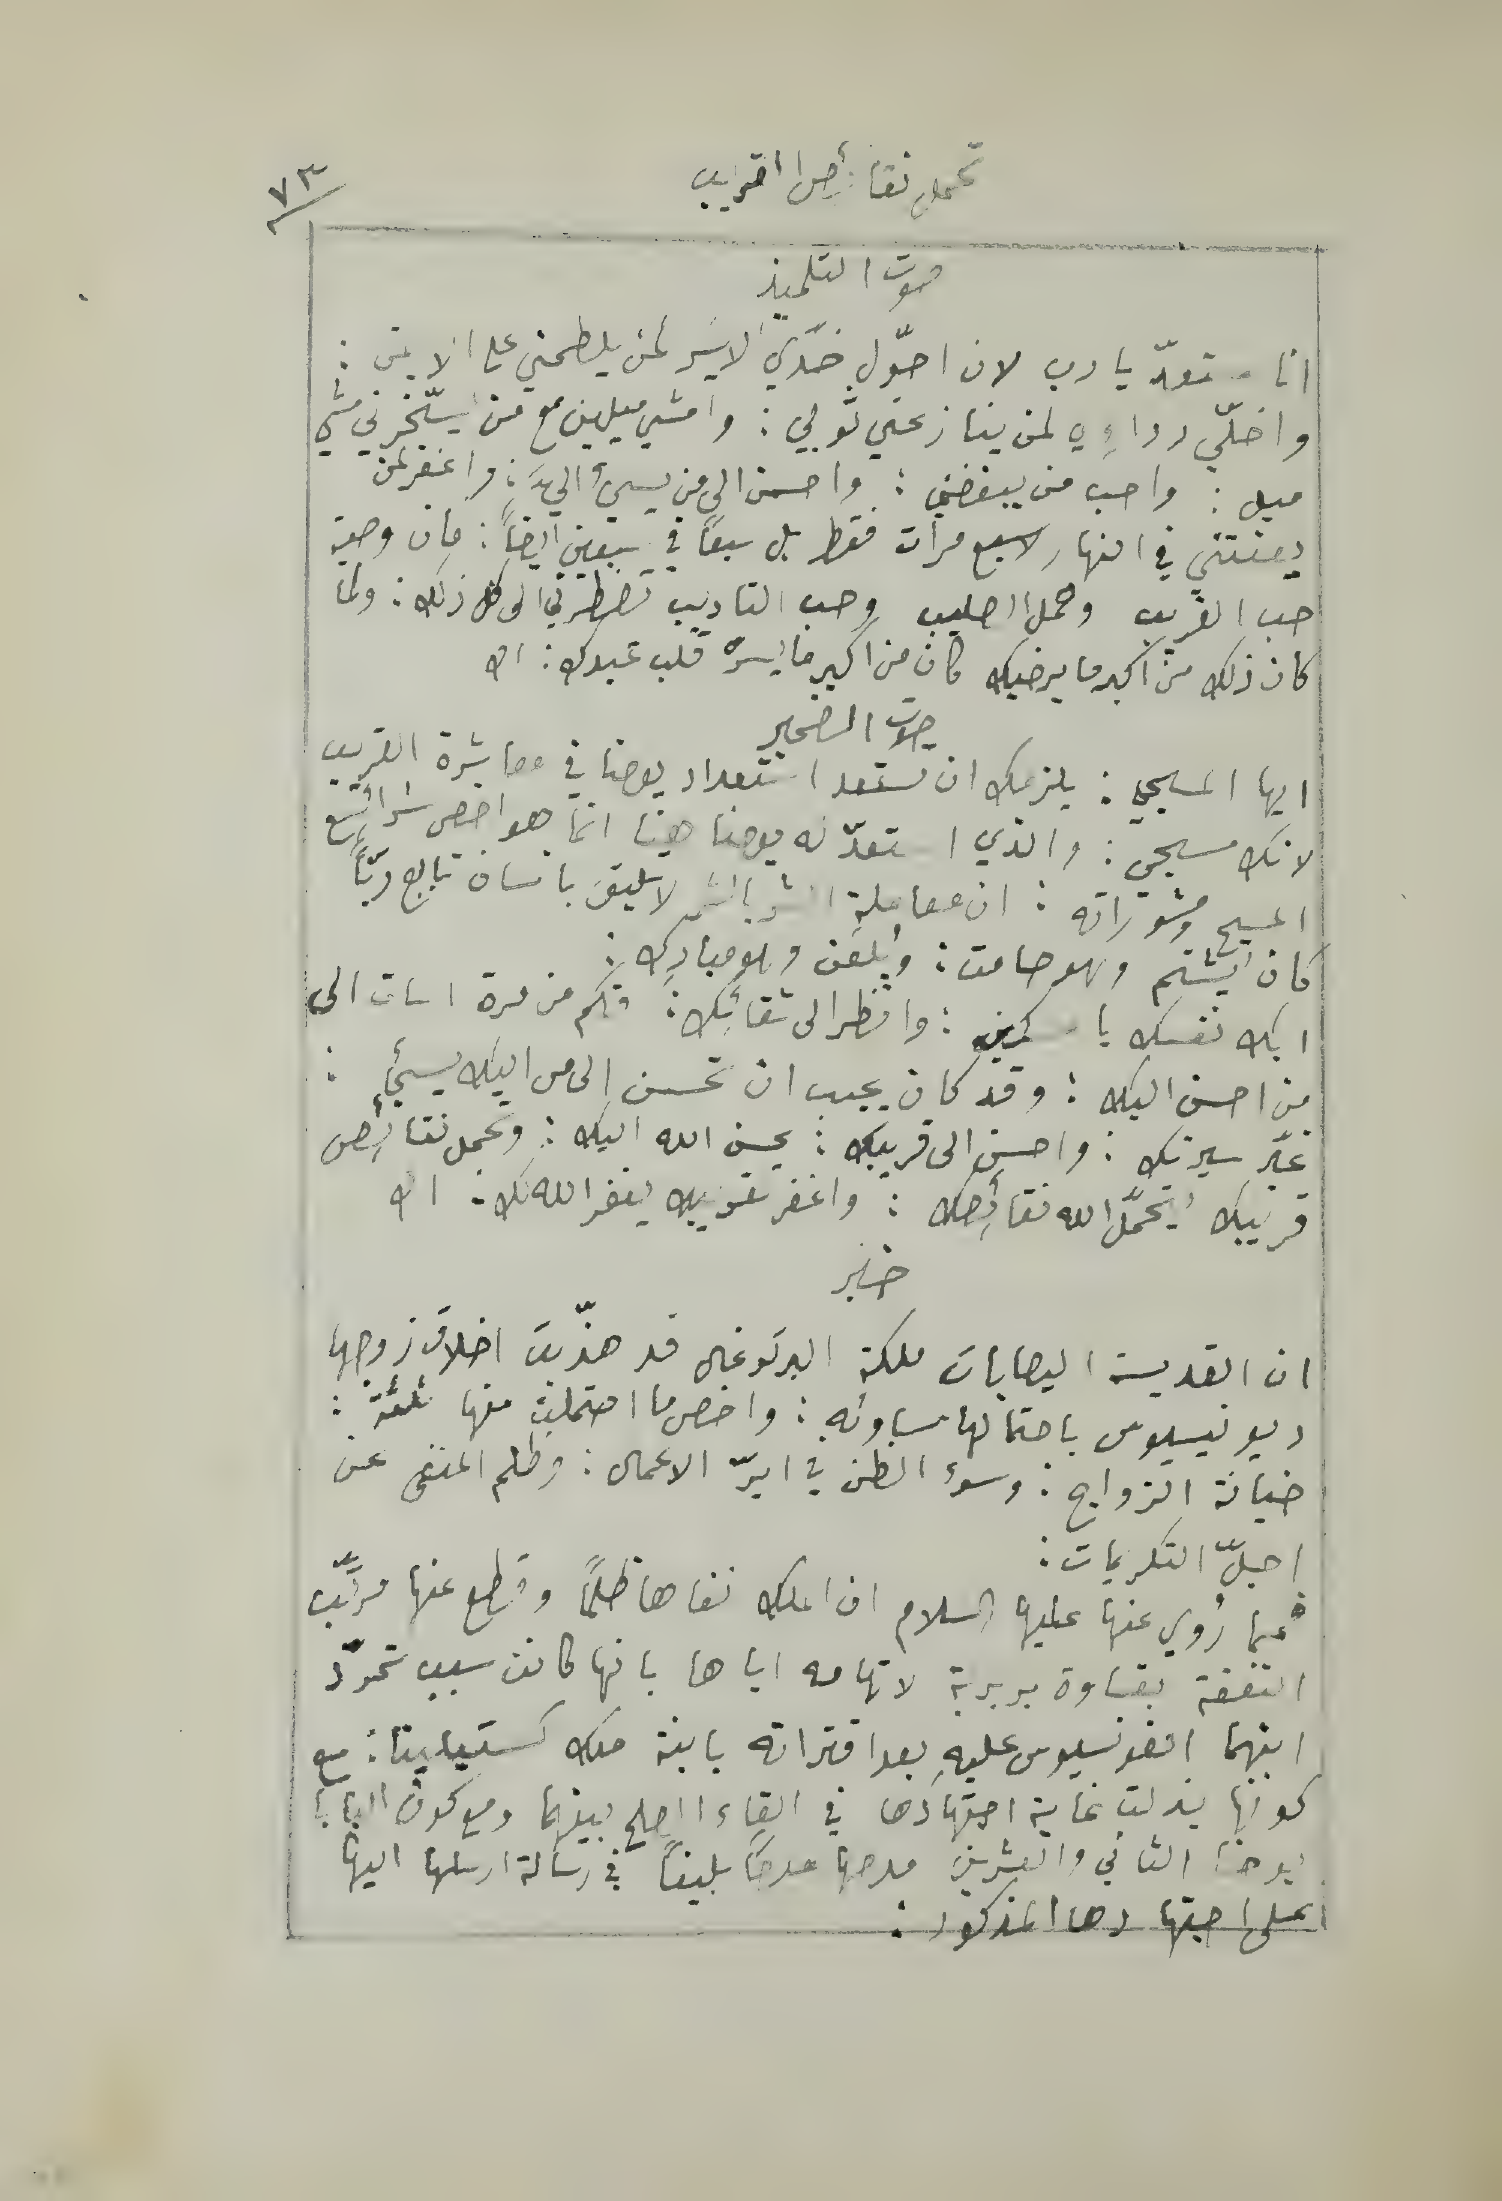 تحمل نقائص القريب
٧٣
صوت التلميذ
انا مستعدّ يا رب لان احوّل خدّي الايسر لمن يلطمني على الايمن :
واخلّي رداءي لمن ينازعني ثوبي : وامشي ميلين مع من يسخّرني مشي
ميل : واحب من يبغضني : واحسن الى من يسيء اليَّ : واغفر لمن
يمقتني في النهار لا سبع مرات فقط بل سبعاً في سبعين ايضاً : فان وصية
حب القريب وحمل الصليب وحب التاديب تضطرني الى كل ذلك : ولما
كان ذلك من اكبر ما يرضيك كان من اكبر ما يسرّ قلب عبدك : اه
صوت الضمير
ايها المسيحي : يلزمك ان تستعد استعداد يوحنا في معاشرة القريب
لانك مسيحي : والذي استعدّ له يوحنا هينا انما هو اخص شرائع
المسيح ومشوراته : ان معاملة الشر بالشر لا تليق بانسان تابع ربّاً
كان يُشتم وهو صامت : ويُلعن وهو مبارك :
ابك نفسك يا مسكين : وانظر الى شقائك : فكم من مرة اسات الى
من احسن اليك : وقد كان يجب ان تحسن الى من اليك يسيء :
غيّر سيرتك : واحسن الى قريبك : يحسن الله اليك : وتحمل نقائص
قريبك يتحمّل الله نقائصك : واغفر لقريبك يغفر الله لك : اه
خبر
ان القديسة اليصابات ملكة البرتوغال قد هذّبت اخلاق زوجها
ديونيسيوس باحتمالها مساوئه : واخص ما احتملت منها ثلثة :
خيانة الزواج : وسوء الظن في ابرّ الاعمال : وظلم المنفى عن
اجلّ التكريمات :
فمما رُوي عنها عليها السلام ان الملك نفاها ظلماً وقطع عنها مرتّب
النفقة بقساوة بربرية لاتهامه اياها بانها كانت سبب تمرّد
ابنهما الفونسيوس عليهِ بعد اقترانه بابنة ملك كستيلينا : مع
كونها بذلت غاية اجتهادها في القاء الصلح بينهما ومع كون البابا
يوحنا الثاني والعشرين مدحها مدحاً بليغاً في رسالة ارسلها اليها
على اجتهادها المذكور :